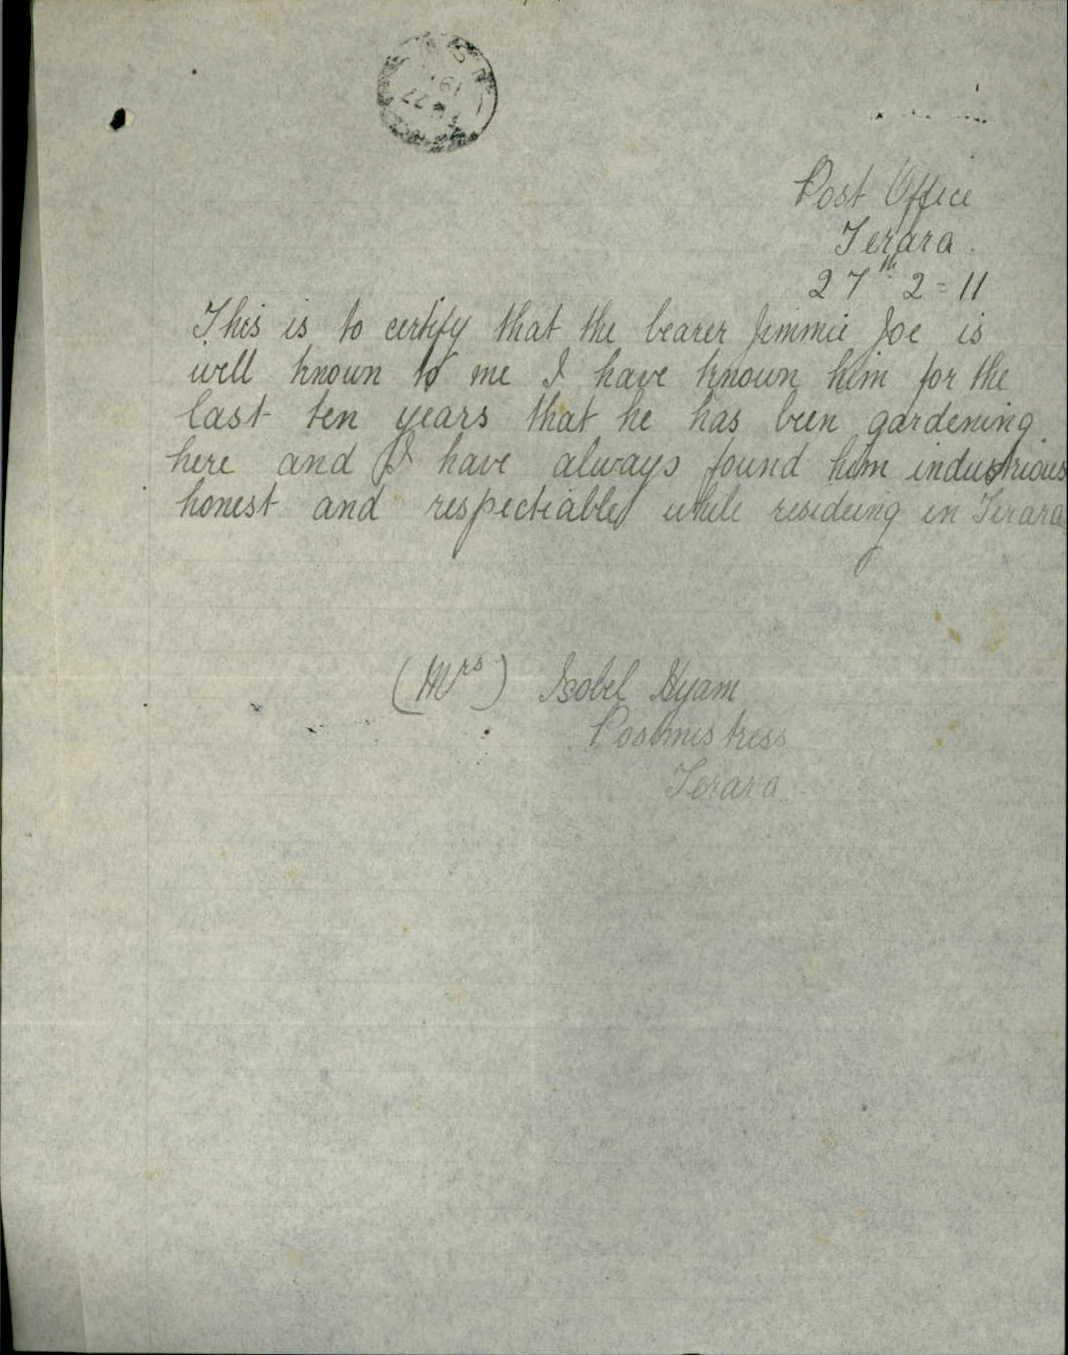 Post Office
Terara.
27th 2=11
This is to certify that the bearer Jimmie Joe is
well known to me I have known him for the
last ten years that he has been gardening
here and I have always found him industrious
honest and respectiable while resideing in Terara
(Mrs) Isobel Hyam
Postmistress
Terara